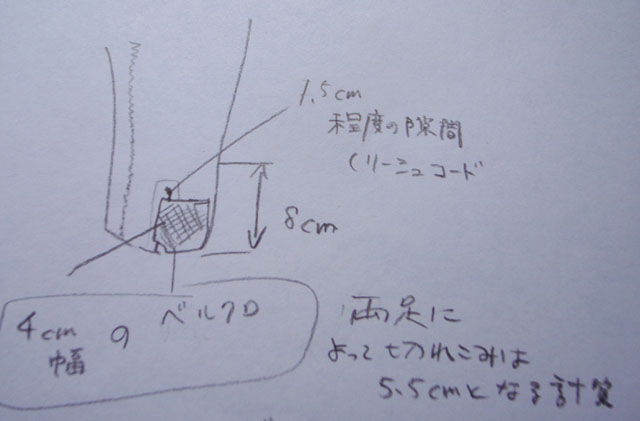 1.5cm
程度の隙間
(リーニュコード
8cm
4cm
幅
の
ベルクロ
両足に
よって切れこみは
5.5cmとなる計算